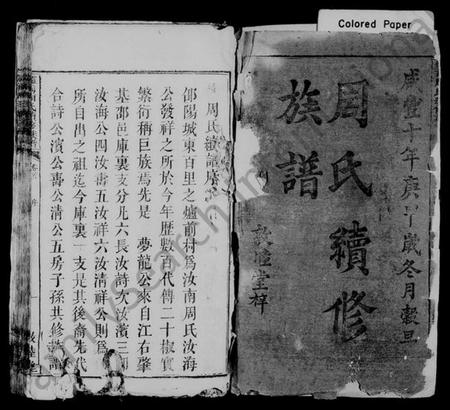 Colored Paper
咸豐十年庚申歲冬月穀旦
周氏續修
族譜
敦睦堂梓
周氏續譜序
邵陽城東百里之爐前村為汝南周氏汝海
公發祥之所於今年歷數百代傳二十椒實
繁衍稱巨族焉先是 夢龍公來自江右肇
基邵邑庫裏支分凡六長汝詩次汝濱三即
汝海公四汝壽五汝祥六汝清祥公則為
所自出之祖迄今庫裏一支是其後裔先代
合詩公濱公壽公清公五房子孫共修譜